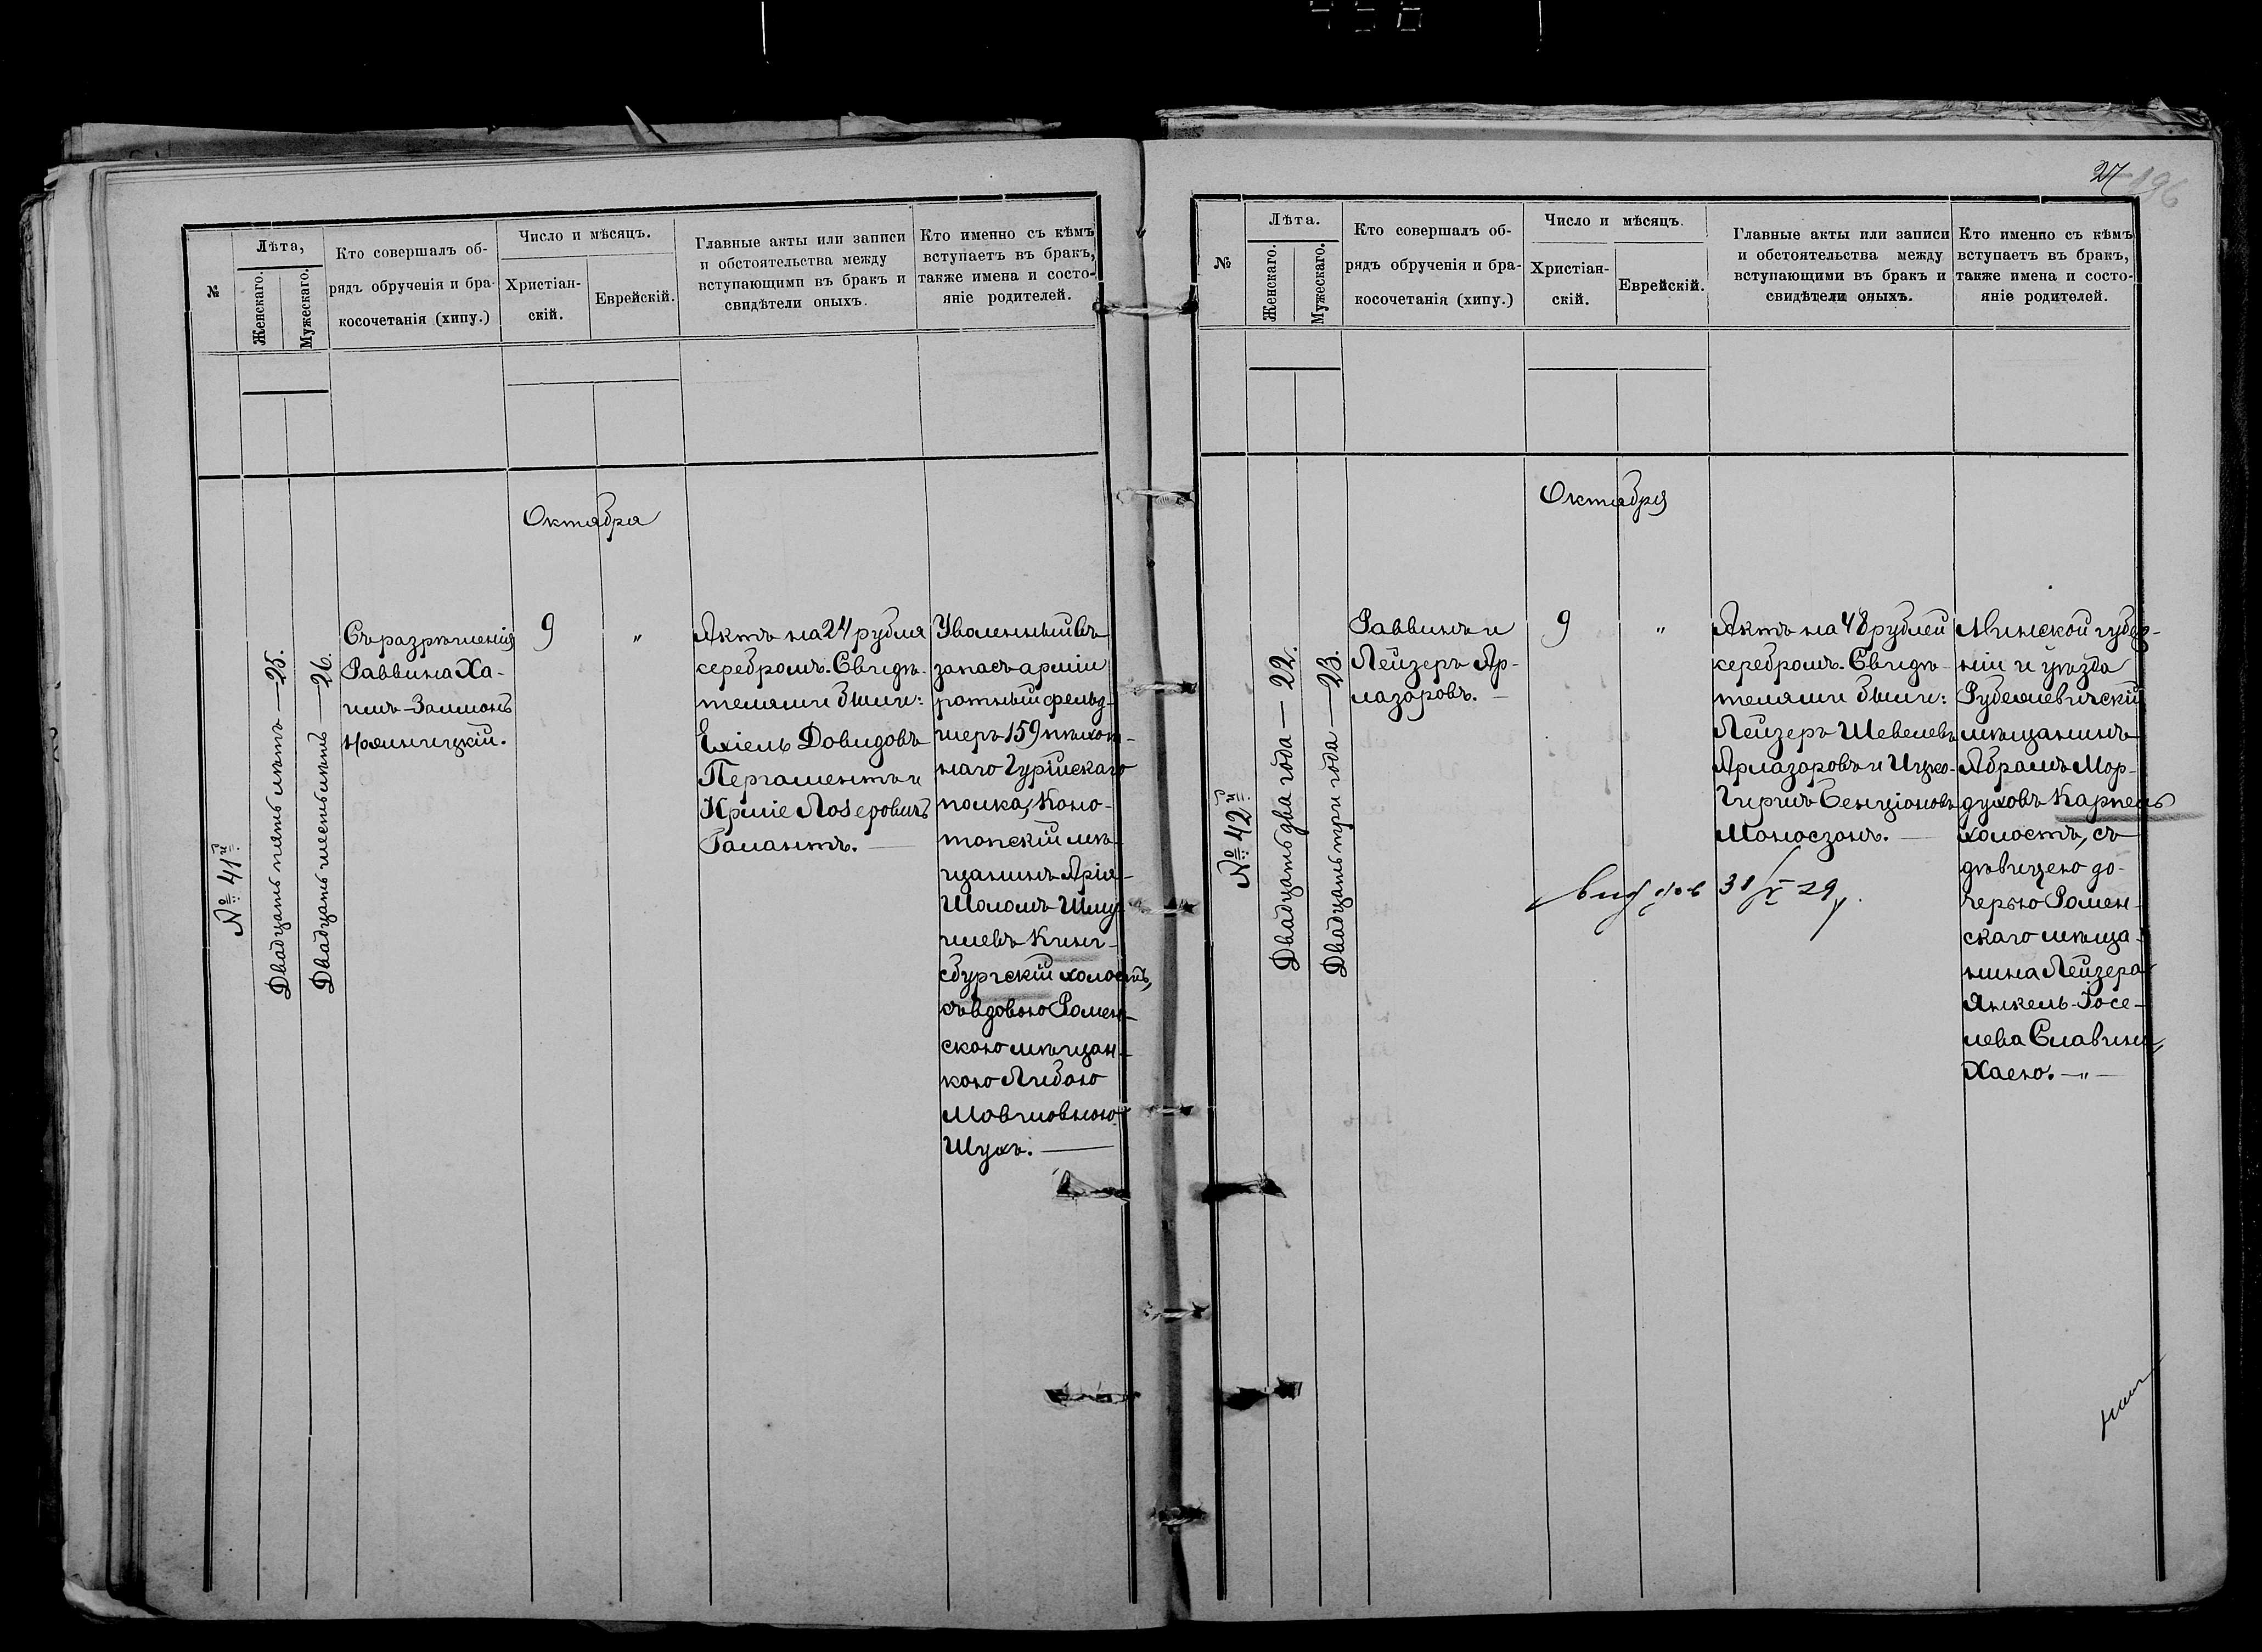 456
№
Лѣта,
Женскаго.
Мужескаго.
Кто совершалъ об-
рядъ обрученія и бра-
косочетанія (хипу.)
Число и мѣсяцъ.
Христіан-
скій.
Еврейскій.
Главные акты или записи
и обстоятельства между
вступающими въ бракъ и
свидѣтели оныхъ.
Кто именно съ кѣмъ
вступаетъ въ бракъ,
также имена и состо-
яніе родителей.
Октября
№ 41й
Двадцать пять лѣтъ — 25.
Двадцать шесть лѣтъ — 26.
Съ разрѣшенія
Раввина Ха-
имъ-Залмонъ
9
"
Актъ на 24 рубля
серебромъ. Свидѣ-
телями были:
Ехіель Довидовъ
Пергаментъ и
Галантъ. —
Уволенный въ
запасъ арміи
ротный фельд-
шеръ 159 пѣхот-
наго Гурійскаго
полка, Коно-
топскій мѣ-
щанинъ Арія-
Шоломъ Шму-
илевъ Кинг-
сбургскій холостъ,
съ вдовою Ромен-
скою мѣщан-
кою Либою
Мовшовною
Шухъ. —
27
196
№
Лѣта.
Женскаго.
Мужескаго.
Кто совершалъ об-
рядъ обрученія и бра-
косочетанія (хипу.)
Число и мѣсяцъ.
Христіан-
скій.
Еврейскій.
Главные акты или записи
и обстоятельства между
вступающими въ бракъ и
свидѣтели оныхъ.
Кто именно съ кѣмъ
вступаетъ въ бракъ,
также имена и состо-
яніе родителей.
Октября
№ 42й
Двадцать два года — 22.
Двадцать три года — 23.
Раввинъ и
Лейзеръ Ар-
лазоровъ. —
9
"
Актъ на 48 рублей
серебромъ. Свидѣ-
телями были:
Лейзеръ Шевелевъ
Арлазоровъ и Ицко-
Гиршъ Бенціоновъ
Моносзонъ. —
31/X 29
Минской губер-
ніи и уѣзда
Рубежевичскій
мѣщанинъ
Абрамъ Мор-
духовъ Карпель
холостъ, съ
дѣвицею до-
черью Ромен-
скаго мѣща-
нина Лейзера
Янкель-Іосе-
лева Славина,
Хаею. — " —